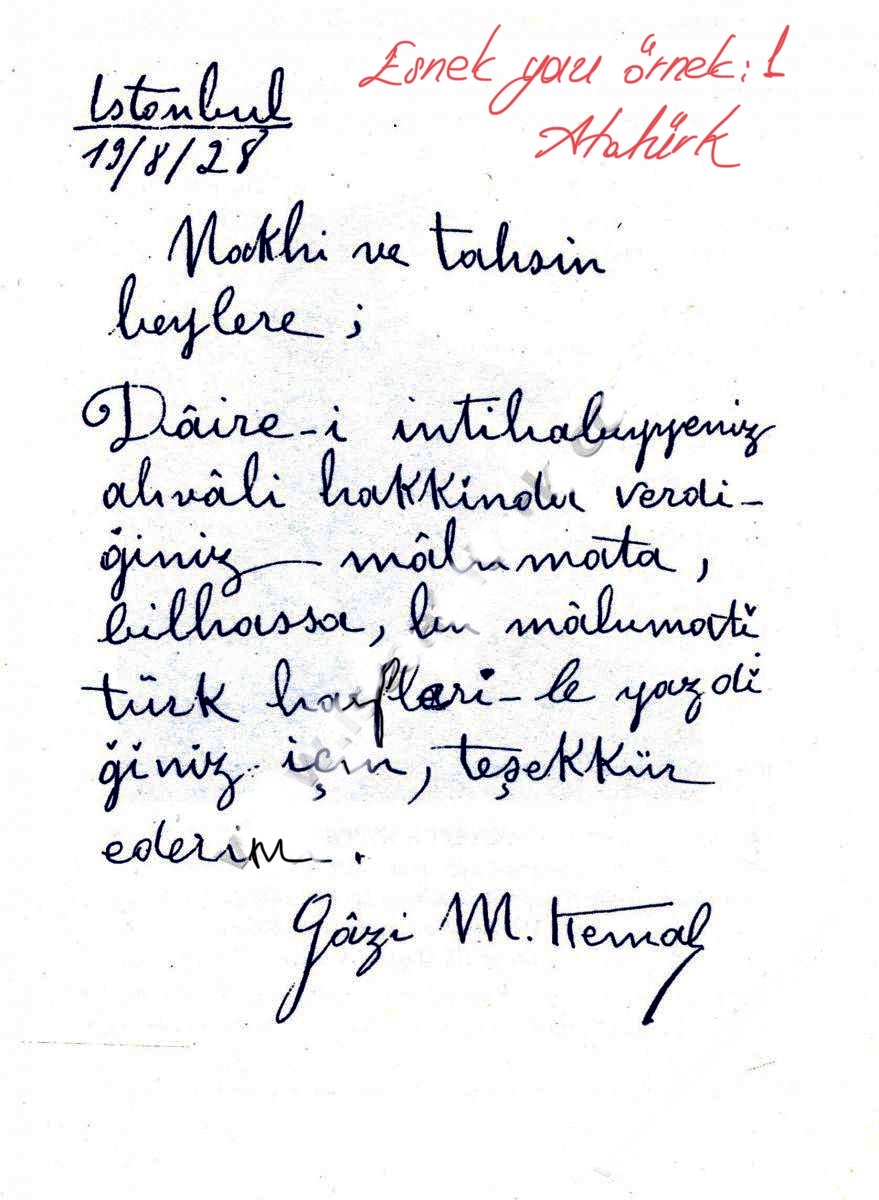 Esnek yazı örnek: 1
Atatürk
Istanbul
19/8/28
Nakhi ve tahsin
beylere ;
Dâire-i intihabiyyeniz
ahvâli hakkinda verdi-
ğiniz mâlumata,
bilhassa, bu mâlumati
türk harfleri-le yazdi
ğiniz için, teşekkür
ederim.
Gâzi M. Kemal